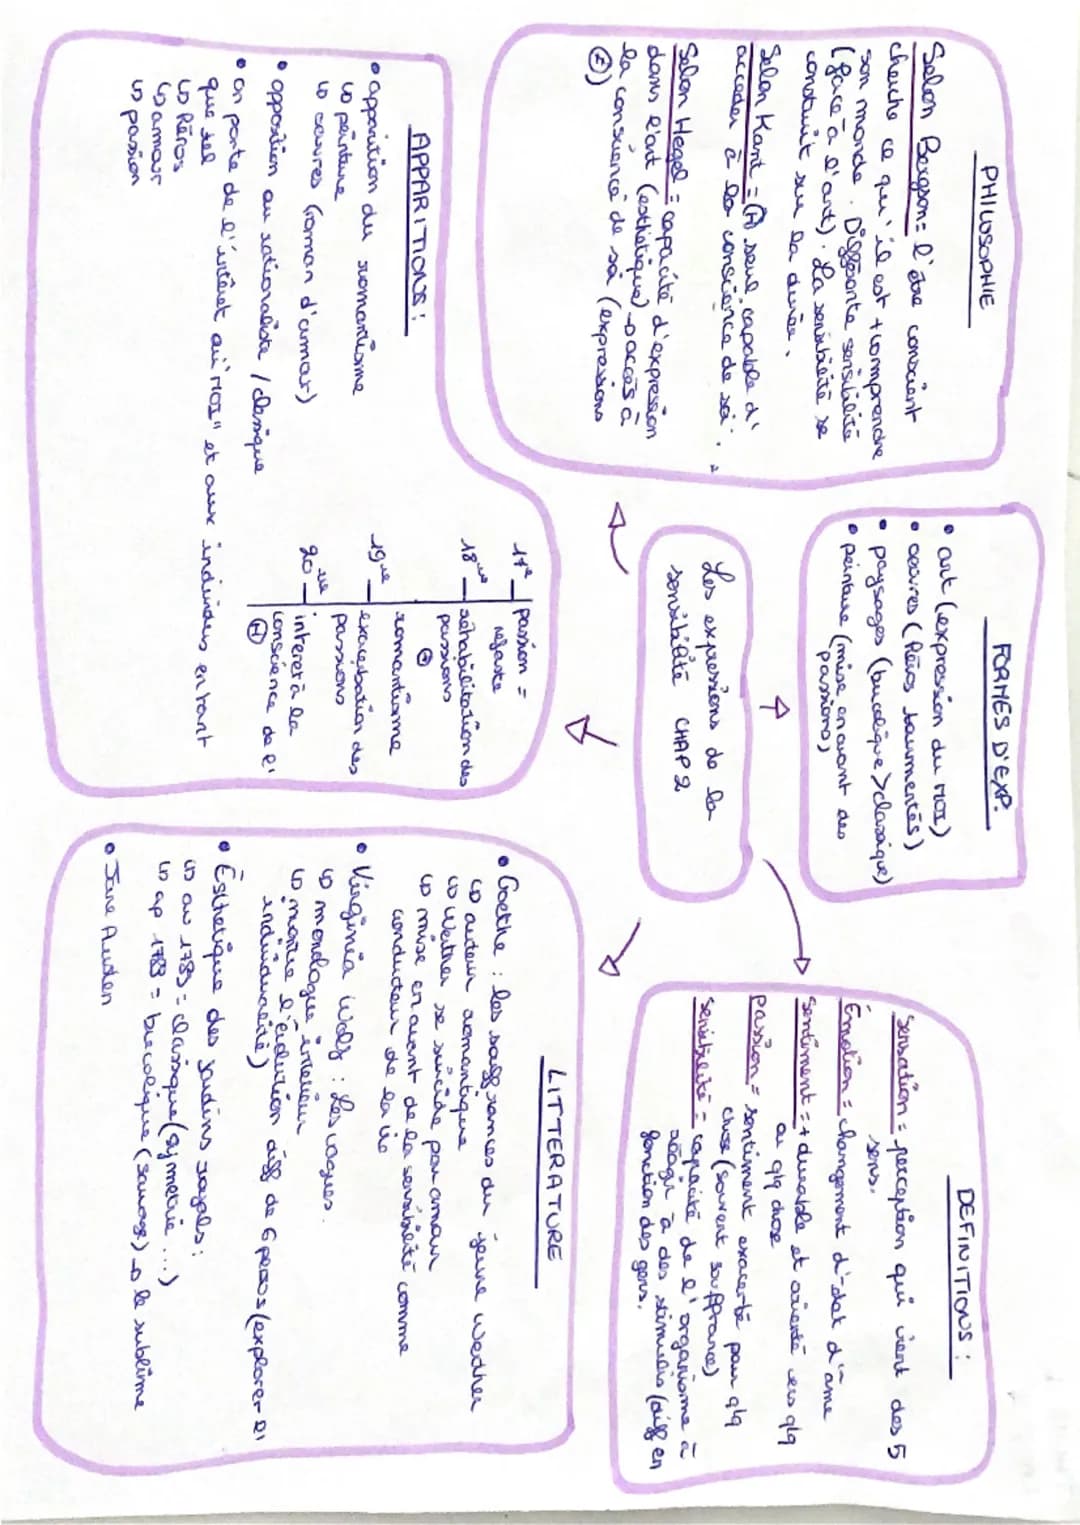 PHILOSOPHIE
Selon Bergson = l'être conscient
cherche ce qu'il est + comprendre
son monde. Différente sensibilité
(face à l'art). La sensibilité se
construit sur la durée.
Selon Kant = (H) seul capable d'
accéder à la conscience de soi.
Selon Hegel = capacité d'expression
dans l'art (esthétique) → accès à
la conscience de soi (expressions
FORMES D'EXP.
• art (expression du MOI)
• œuvres (Héros tourmentés)
• paysages (bucolique > classique)
• peinture (mise en avant des
passions)
DEFINITIONS :
Sensation = perception qui vient des 5
sens.
Émotion = changement d'état d'âme
Sentiment = + durable et orienté vers qlq
ou qlq chose
passion = sentiment exacerbé pour qlq
chose (souvent souffrance)
sensibilité = capacité de l'organisme à
réagir à des stimulis (diff en
fonction des gens.
Les expressions de la
sensibilité CHAP 2
APPARITIONS :
• apparition du romantisme
↳ peinture
↳ œuvres (roman d'amour)
• opposition au rationaliste / classique
• on porte de l'intérêt au "MOI" et aux individus en tant
que tel
↳ Héros
↳ amour
↳ passion
17e passion =
néfaste
18ème réhabilitation des
passions
⊕
romantisme
19ème exacerbation des
passions
20ème intérêt à la
conscience de l'
(H)
LITTERATURE
• Goethe : les souffrances du jeune Werther
↳ auteur romantique
↳ Werther se suicide par amour
↳ mise en avant de la sensibilité comme
conducteur de la vie
• Virginia Wolf : Les vagues.
↳ monologue intérieur
↳ montre l'évolution diff de 6 persos (explorer l'
individualité)
• Esthétique des jardins royals :
↳ av 1789 = classique (symétrie ...)
↳ ap 1789 = bucolique (sauvage) → le sublime
• Jane Austen